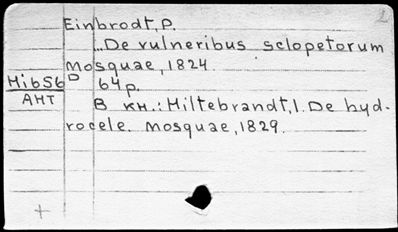 Einbrodt, P.
...De vulneribus sclopetorum
Mosquae, 1824.
Hi656
AHT
D 64 p.
В кн.: Hiltebrandt, I. De hyd-
rocele. Mosquae, 1829.